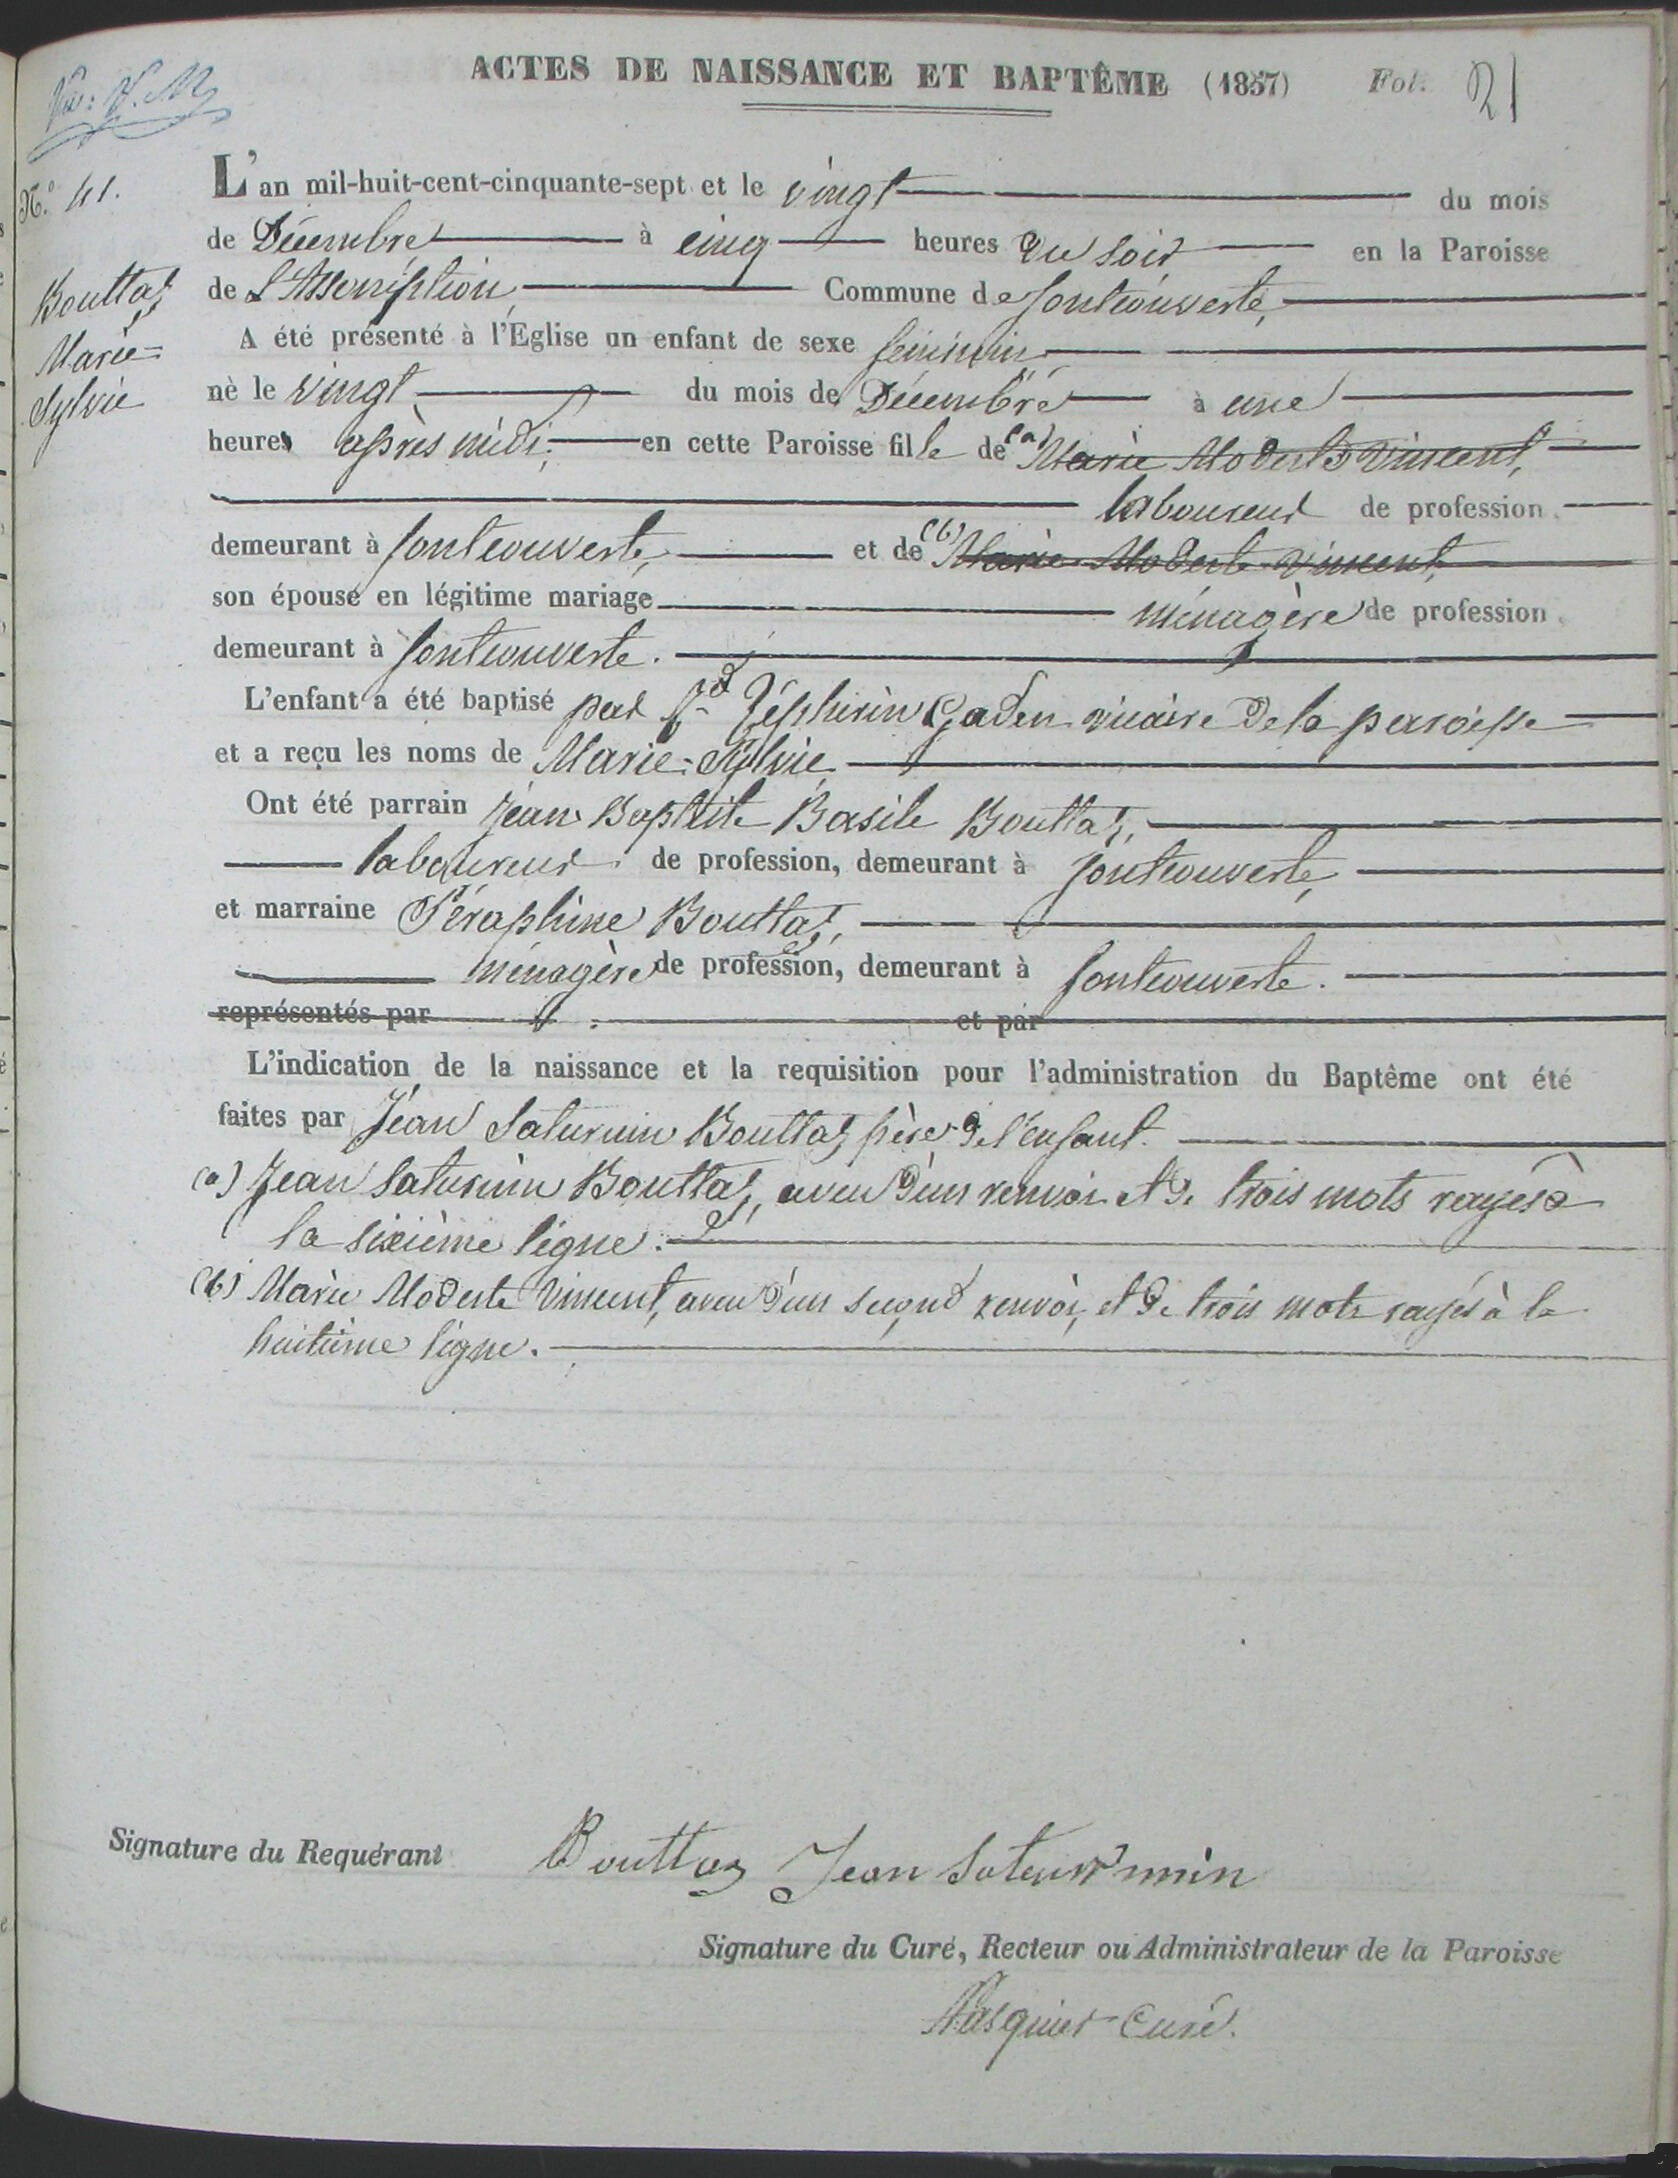 ACTES DE NAISSANCE ET BAPTÊME (1857) Fol. 21
N.° 41.
Bouttaz
Marie-
Sylvie
L'an mil-huit-cent-cinquante-sept et le vingt du mois
de Décembre à cinq heures du soir en la Paroisse
de L'Assomption, Commune de fontcouverte,
A été présenté à l'Eglise un enfant de sexe féminin
nè le vingt du mois de Décembre à une
heures après midi, en cette Paroisse fille de (a) Marie Modeste Vincent,
laboureur de profession
demeurant à fontcouverte, et de (b) Marie Modeste Vincent,
son épouse en légitime mariage ménagère de profession
demeurant à fontcouverte.
L'enfant a été baptisé par Rd Zéphirin Gaden vicaire de la paroisse
et a reçu les noms de Marie-Sylvie
Ont été parrain Jean Baptiste Basile Bouttaz,
laboureur de profession, demeurant à fontcouverte,
et marraine Séraphine Bouttaz,
ménagère de profession, demeurant à fontcouverte.
représentés par et par
L'indication de la naissance et la requisition pour l'administration du Baptême ont été
faites par Jean Saturnin Bouttaz père de l'enfant.
(a) Jean Saturnin Bouttaz, aveu d'un renvoi et de trois mots rayés à
la sixième ligne.
(b) Marie Modeste Vincent, aveu d'un second renvoi, et de trois mots rayés à la
huitième ligne.
Signature du Requérant Bouttaz Jean Saturnin
Signature du Curé, Recteur ou Administrateur de la Paroisse
Pasquier Curé.